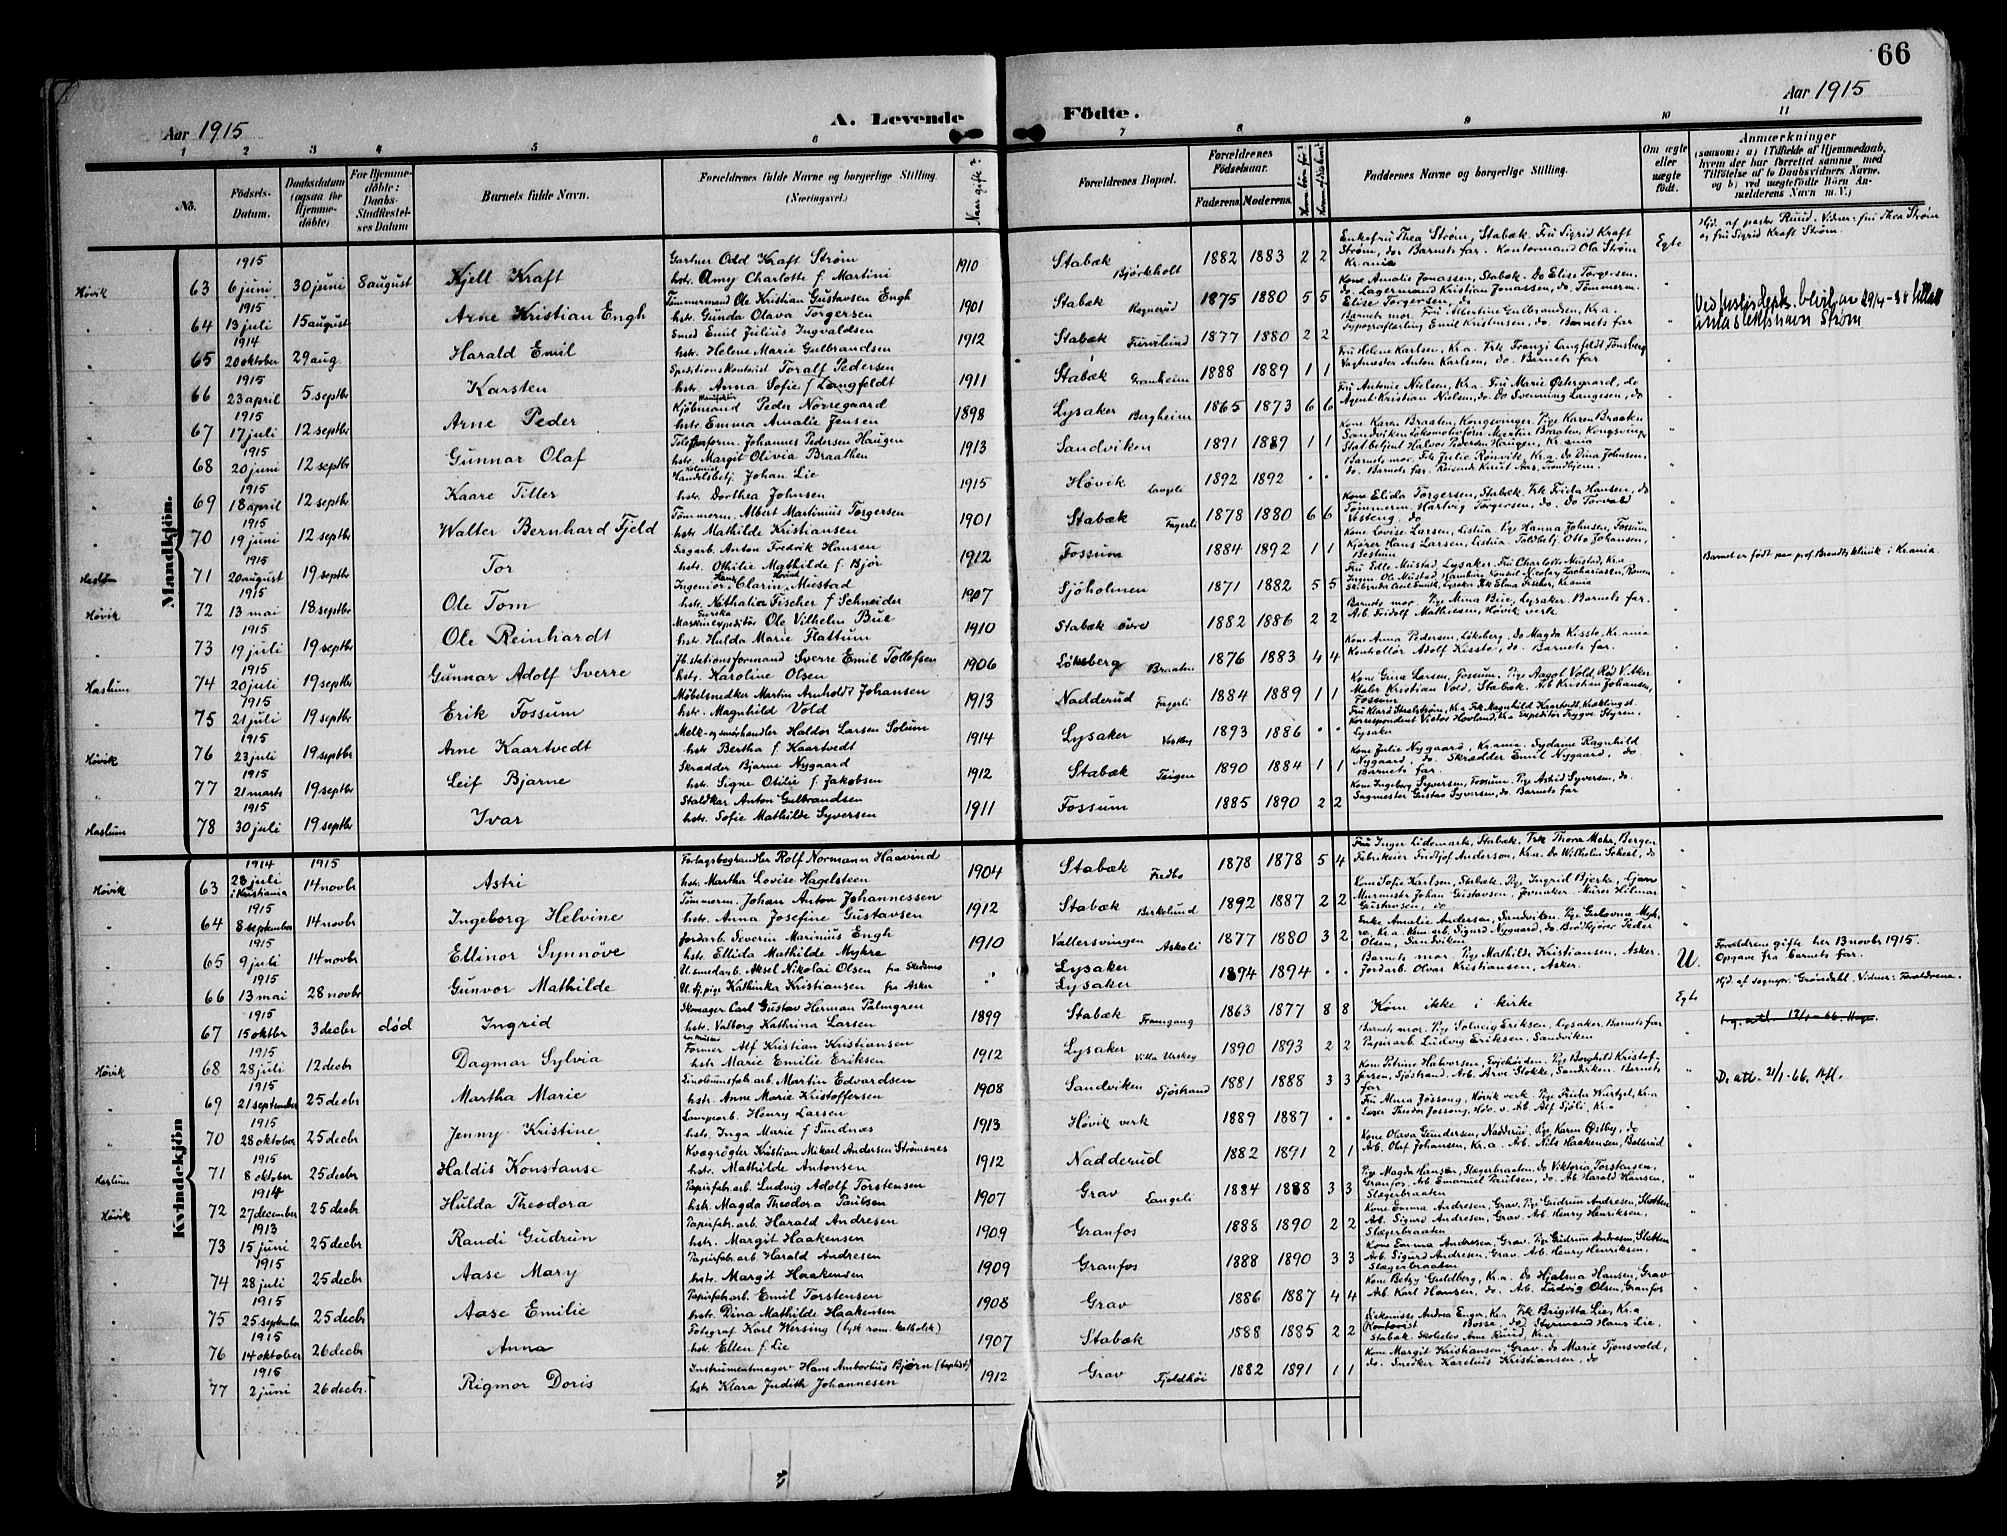 66
Aar 1915
A. Levende Födte.
Aar 1915
1 2 3 4 5 6 7 8 9 10 11
No. Födsels-Datum. Daabsdatum (ogsaa for Hjemmedøbte) For Hjemmedøbte: Daabs-Stadfestelses Datum Barnets fulde Navn. Forældrenes fulde Navne og borgerlige Stilling. (Næringsvei.) Naar gifte? Forældrenes Bopæl. Forældrenes Födselsaar. Faderens. Moderens. Faddernes Navne og borgerlige Stilling. Om ægte eller uægte födt. Anmærkninger (saasom: a) i Tilfælde af Hjemmedaab, hvem der har forrettet samme med Tilföielse af to Daabsvidners Navne, og b) ved uægtefödte Börn Anmelderens Navn m. V.)
Mandkjön.
Høvik 63 1915 6 juni 30 juni 8 august Kjell Kraft Gartner Odd Kraft Strøm hstr. Amy Charlotte f Martini 1910 Stabæk Bjørkholt 1882 1883 2 2 Enkefru Thea Strøm, Stabæk. Fru Sigrid Kraft Strøm, do. Barnets far. Kontormand Ola Strøm Kr.ania Egte Hjd. af pastor Ruud. Vidner: fru Thea Strøm og fru Sigrid Kraft Strøm.
64 1915 13 juli 15 august Arne Kristian Engh Tømmermand Ole Kristian Gustavsen Engh hstr. Gunda Olava Torgersen 1901 Stabæk Ragnerud 1875 1880 5 5 Kone Amalie Jonassen, Stabæk. Do Elise Torgersen, do. Lagermand Kristian Jonassen, do. Tømmerm. Elise Torgersen, do
65 1914 20 oktober 29 aug. Harald Emil Smed Emil Julius Ingvaldsen hstr. Helene Marie Gulbrandsen 1912 Stabæk Furulund 1877 1880 2 2 Barnets mor. Fru Albertine Gulbrandsen, Kr.a. Typograflærling Emil Kristiansen, do. Barnets far
66 1915 23 april 5 septbr Karsten Speditionskontorist Toralf Pedersen hstr. Anna Sofie f Langfeldt 1911 Stabæk Granheim 1888 1889 1 1 Fru Helene Karlsen, Kr.a. Frk Franzi Langfeldt, Tønsberg Vagtmester Anton Karlsen, do. Barnets far
67 1915 17 juli 12 septbr Arne Peder Kjøbmand Peder Norregaard hstr. Emma Amalie Jensen 1898 Lysaker Bergheim 1865 1873 6 6 Fru Antonie Nielsen, Kr.a. Fru Marie Østergaard, do Agent Kristian Nielsen, do. Do Svenning Langesen, do
68 1915 20 juni 12 septbr Gunnar Olaf Telefonform. Johannes Pedersen Haugen hstr. Margit Olivia Braathen 1913 Sandviken 1891 1889 1 1 Kone Karen Braaten, Kongsvinger. Pige Karen Braaten Sandviken Lokomotivfører Martin Braaten, Kongsvinger Statbetjent Halvor Pedersen Haugen, Kr.ania
69 1915 18 april 12 septbr Kaare Tiller Handelsbetj. Johan Lie hstr. Dorthea Johnsen 1915 Høvik Langeli 1892 1892 . . Barnets mor. Frk Julie Rønvik, Kr.a. do Dina Johnsen, do. Barnets far. Reisende Knut Aas, Trondhjem.
70 1915 19 juni 12 septbr Walter Bernhard Fjeld Tømmerm. Albert Martinius Torgersen hstr. Mathilde Kristiansen 1901 Stabæk Fagerli 1878 1880 6 6 Kone Elida Torgersen, Stabæk. Frk Frida Hansen, do Tømmerm. Hartvig Torgersen, do. Do Torvald Vesteng, do
Haslum 71 1915 20 august 19 septbr Tor Sagarb. Anton Fredrik Hansen hstr. Othilie Mathilde f. Bjør 1912 Fossum 1884 1892 1 1 Kone Lovise Larsen, Listua. Pige Hanna Johnsen, Fossum Kjører Hans Larsen, Listua. Toldbetj. Otto Johansen, Bestum Barnet er født paa prof. Brandts klinik i Kr.ania
Høvik 72 1915 13 mai 18 septbr Ole Tom Ingeniør Hans Clarin Hovind Mustad hstr. Nathalia Fischer f Schneider 1907 Sjøholmen 1871 1882 5 5 Fru Edle Mustad, Lysaker. Fru Charlotte Mustad, Kr.a
73 1915 19 juli 19 septbr Ole Reinhardt Maskinexpeditør Ole Vilhelm Bue hstr. Hulda Marie Flattum 1910 Stabæk øvre 1882 1886 2 2 Barnets mor. Pige Anna Bue, Lysaker. Barnets far. Arb. Fridolf Mathiesen, Høvik verk
Haslum 74 1915 20 juli 19 septbr Gunnar Adolf Sverre Jb.stationsformand Sverre Emil Tollefsen hstr. Karoline Olsen 1906 Løksberg Braaten 1876 1883 4 4 Kone Anna Pedersen, Løksberg. do Magda Kissto, Kr.ania Kontrollør Adolf Kissto, do. Barnets far.
75 1915 21 juli 19 septbr Erik Fossum Møbelsnedker Martin Arnholdt Johansen hstr. Magnhild Vold 1913 Nadderud Fagerli 1884 1889 1 1 Kone Grina Larsen, Fossum. Pige Aagot Vold, Rød V. Aker Maler Kristian Vold, Stabæk. Arb Kristian Johansen, Fossum
Høvik 76 1915 23 juli 19 septbr Arne Kaartvedt Melk- og smørhandler Haldor Larsen Solum hstr. Bertha f Kaartvedt 1914 Lysaker Vestby 1893 1886 . . Korrespondent Victor Hovland, Kr.a Expeditør Trygve Styren, Lysaker
77 1915 21 marts 19 septbr Leif Bjarne Skrædder Bjarne Nygaard hstr. Signe Otilie f Jakobsen 1912 Stabæk Teigen 1890 1884 1 1 Kone Julie Nygaard, Kr.ania. Sydame Ragnhild Nygaard, do. Skrædder Emil Nygaard, do. Barnets far.
Haslum 78 1915 30 juli 19 septbr Ivar Staldkar Anton Gulbrandsen hstr. Sofie Mathilde Syversen 1911 Fossum 1885 1890 2 2 Kone Ingeborg Syversen, Fossum. Pige Astrid Syversen, do. Sagmester Gustav Syversen, do. Barnets far
Kvindekjön
Høvik 63 1914 28 juli i Kristiania 1915 14 novbr Astri Forlagsboghandler Rolf Normann Haavind hstr. Martha Lovise Hagelsteen 1904 Stabæk Fredbo 1878 1878 5 4 Fru Inger Lidemark, Stabæk. Frk Thora Mohr, Bergen Fabrikeier Fridtjof Anderson, Kr.a. Do Wilhelm Scheel, do
64 1915 8 september 14 novbr Ingeborg Helvine Tømmerm. Johan Anton Johannessen hstr. Anna Josefine Gustavsen 1912 Stabæk Birkelund 1892 1887 2 2 Kone Sofie Karlsen, Stabæk. Pige Ingrid Bjerke, Gjøvi Murmester Johan Gustavsen, Jevnaker. Murer Hilmar Gustavsen, do
65 1915 9 juli 14 novbr Ellinor Synnöve Jordarb. Severin Marinius Engh hstr. Ellida Mathilde Myhre 1910 Vallersvingen Askeli 1877 1880 3 2 Enke Amalie Andersen, Sandviken. Kr.a. Kom.arb. Sigurd Nygaard, do. Brødkjører Peder Olsen, Sandviken
66 1915 13 mai 28 novbr Gunvor Mathilde U. smedarb. Aksel Nikolai Olsen fra Skedsmo U. tj.pige Kathinka Kristiansen fra Asker Lysaker Lysaker 1894 1894 . . Barnets mor. Pige Mathilde Kristiansen, Asker. Jordarb. Olvar Kristiansen, Asker. U. Forældrene gifte her 13 novbr 1915. Opgave fra barnets far.
67 1915 15 oktbr 3 decbr død Ingrid Skomager Carl Gustav Herman Palmgren hstr. Valborg Kathrina Larsen 1899 Stabæk Framgang 1863 1877 8 8 Kom ikke i kirke Egte Hjd. af sognepr. Grøndahl. Vidner: Forældrene.
Høvik 68 1915 28 juli 12 decbr Dagmar Sylvia Former Alf Kristian Kristiansen hstr. Marie Emilie Eriksen 1912 Lysaker Villa Utskog 1890 1893 2 2 Barnets mor. Pige Solveig Eriksen, Lysaker. Barnets far Papirarb. Ludvig Eriksen, Sandviken
69 1915 21 september 25 decbr Martha Marie Linoleumsfabr.arb. Martin Edvardsen hstr. Anne Marie Kristoffersen 1908 Sandviken Sjøstrand 1881 1888 3 3 Kone Petrine Halvorsen, Pige Borghild Kristoffersen, Sjöstrand. Arb. Arve Slokke, Sandviken. Barnets far D. att. 21/1-66.
70 1915 28 oktober 25 decbr Jenny Kristine Lampearb. Henry Larsen hstr. Inga Marie f Sundnæs 1913 Høvik verk 1889 1887 . . Fru Anna Jossong, Høvik verk. Pige Frida Wurtzel, Kr.a Theodor Jossong, Høv. v. Arb Alf Sjöli, Kr.a
Haslum 71 1915 8 oktober 25 decbr Haldis Konstanse Kvægrøgter Kristian Mikael Andersen Strømsnes hstr. Mathilde Antonsen 1912 Nadderud 1882 1891 2 1 Kone Olava Gundersen, Nadderud. Pige Karen Østby, do Arb. Olaf Johansen, Kr.a. Arb. Nils Haakensen, Ballerud
Høvik 72 1914 27 december 25 decbr Hulda Theodora Papirfabr.arb. Ludvig Adolf Torstensen hstr. Magda Theodora Paulsen 1907 Grav Langeli 1884 1888 3 3 Pige Magda Hansen, Slæperbraaten. do Viktoria Torstensen, Granfos. Arb Emanuel Paulsen, do. Arb. Harald Hansen, Slæperbraaten
73 1913 15 juni 25 decbr Randi Gudrun Papirfabr.arb Harald Andresen hstr. Margit Haakensen 1909 Granfos 1888 1890 2 2 Kone Emma Andresen, Grav. Pige Gudrun Andresen, Slotten Arb. Sigurd Andresen, Grav. Arb. Henry Henriksen, Slæperbraaten
74 1915 28 juli 25 decbr Aase Mary Papirfabr.arb Harald Andresen hstr. Margit Haakensen 1909 Granfos 1888 1890 3 3 Kone Emma Andresen, Grav. Pige Gudrun Andresen, Slotten Arb. Sigurd Andresen, Grav. Arb. Henry Henriksen, Slæperbraaten
75 1915 25 september 25 decbr Aase Emilie Papirfabr.arb Emil Torstensen hstr. Dina Mathilde Haakensen 1908 Grav 1886 1887 4 4 Kone Betzy Guldberg, Kr.a. Do Hjalma Hansen, Grav Arb Karl Hansen, do. Arb. Ludvig Olsen, Granfos
76 1915 14 oktober 26 decbr Anna Fotograf Karl Wersing (tysk rom. katholik) hstr. Ellen f Lie 1907 Stabæk 1888 1885 2 2 Andrea Enger, Kr.a. Frk Brigitta Lie, Kr.a Bosse, do. Styrmand Hans Lie, Stabæk. Skoleelev Arne Ruud, Kr.a
77 1915 2 juni 26 decbr. Rigmor Doris Instrumentmager Hans Ambortius Bjørn (baptist) hstr Klara Judith Johannesen 1912 Grav Fjeldhöi 1882 1891 1 1 Kone Margit Kristiansen, Grav. do Marie Tjonsvold, do. Snedker Karelius Kristiansen, do